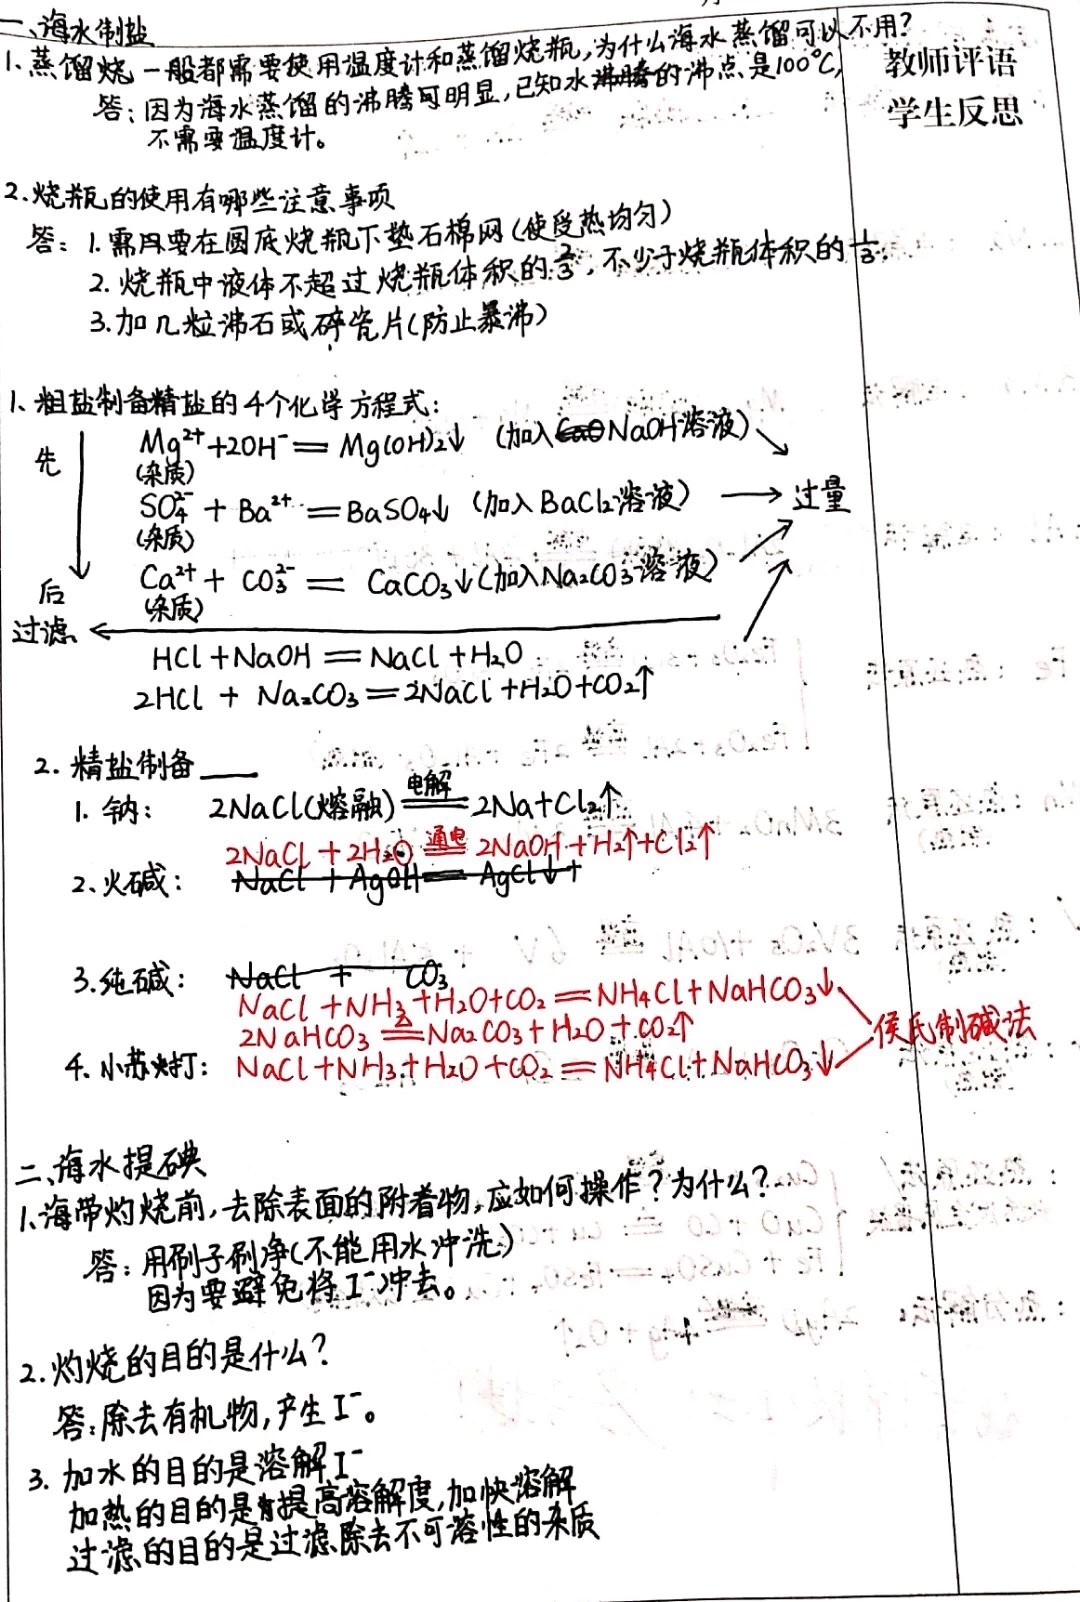 一、海水制盐
1、蒸馏烧一般都需要使用温度计和蒸馏烧瓶,为什么海水蒸馏可以不用?
答:因为海水蒸馏的沸腾可明显,已知水沸腾的沸点是100℃,
不需要温度计。
教师评语
学生反思
2.烧瓶的使用有哪些注意事项
答: 1.需要在圆底烧瓶下垫石棉网(使受热均匀)
2.烧瓶中液体不超过烧瓶体积的2/3,不少于烧瓶体积的1/3;
3.加几粒沸石或碎瓷片(防止暴沸)
1、粗盐制备精盐的4个化学方程式:
先
Mg²⁺+2OH⁻=Mg(OH)₂↓ (加入NaOH溶液)
(杂质)
SO₄²⁻+Ba²⁺=BaSO₄↓ (加入BaCl₂溶液) → 过量
(杂质)
Ca²⁺+CO₃²⁻=CaCO₃↓(加入Na₂CO₃溶液)
(杂质)
后
过滤
HCl+NaOH=NaCl+H₂O
2HCl+Na₂CO₃=2NaCl+H₂O+CO₂↑
2.精盐制备
1.钠: 2NaCl(熔融) 电解 = 2Na+Cl₂↑
2NaCl+2H₂O 通电 = 2NaOH+H₂↑+Cl₂↑
2、火碱: NaCl+AgOH=AgCl↓+
3.纯碱: NaCl + CO₃
NaCl+NH₃+H₂O+CO₂=NH₄Cl+NaHCO₃↓
2NaHCO₃ △ = Na₂CO₃+H₂O+CO₂↑
侯氏制碱法
4.小苏打: NaCl+NH₃+H₂O+CO₂=NH₄Cl+NaHCO₃↓
二、海水提碘
1、海带灼烧前,去除表面的附着物,应如何操作?为什么?
答:用刷子刷净(不能用水冲洗)
因为要避免将I⁻冲去。
2.灼烧的目的是什么?
答:除去有机物,产生I⁻。
3.加水的目的是溶解I⁻
加热的目的是提高溶解度,加快溶解
过滤的目的是过滤除去不可溶性的杂质